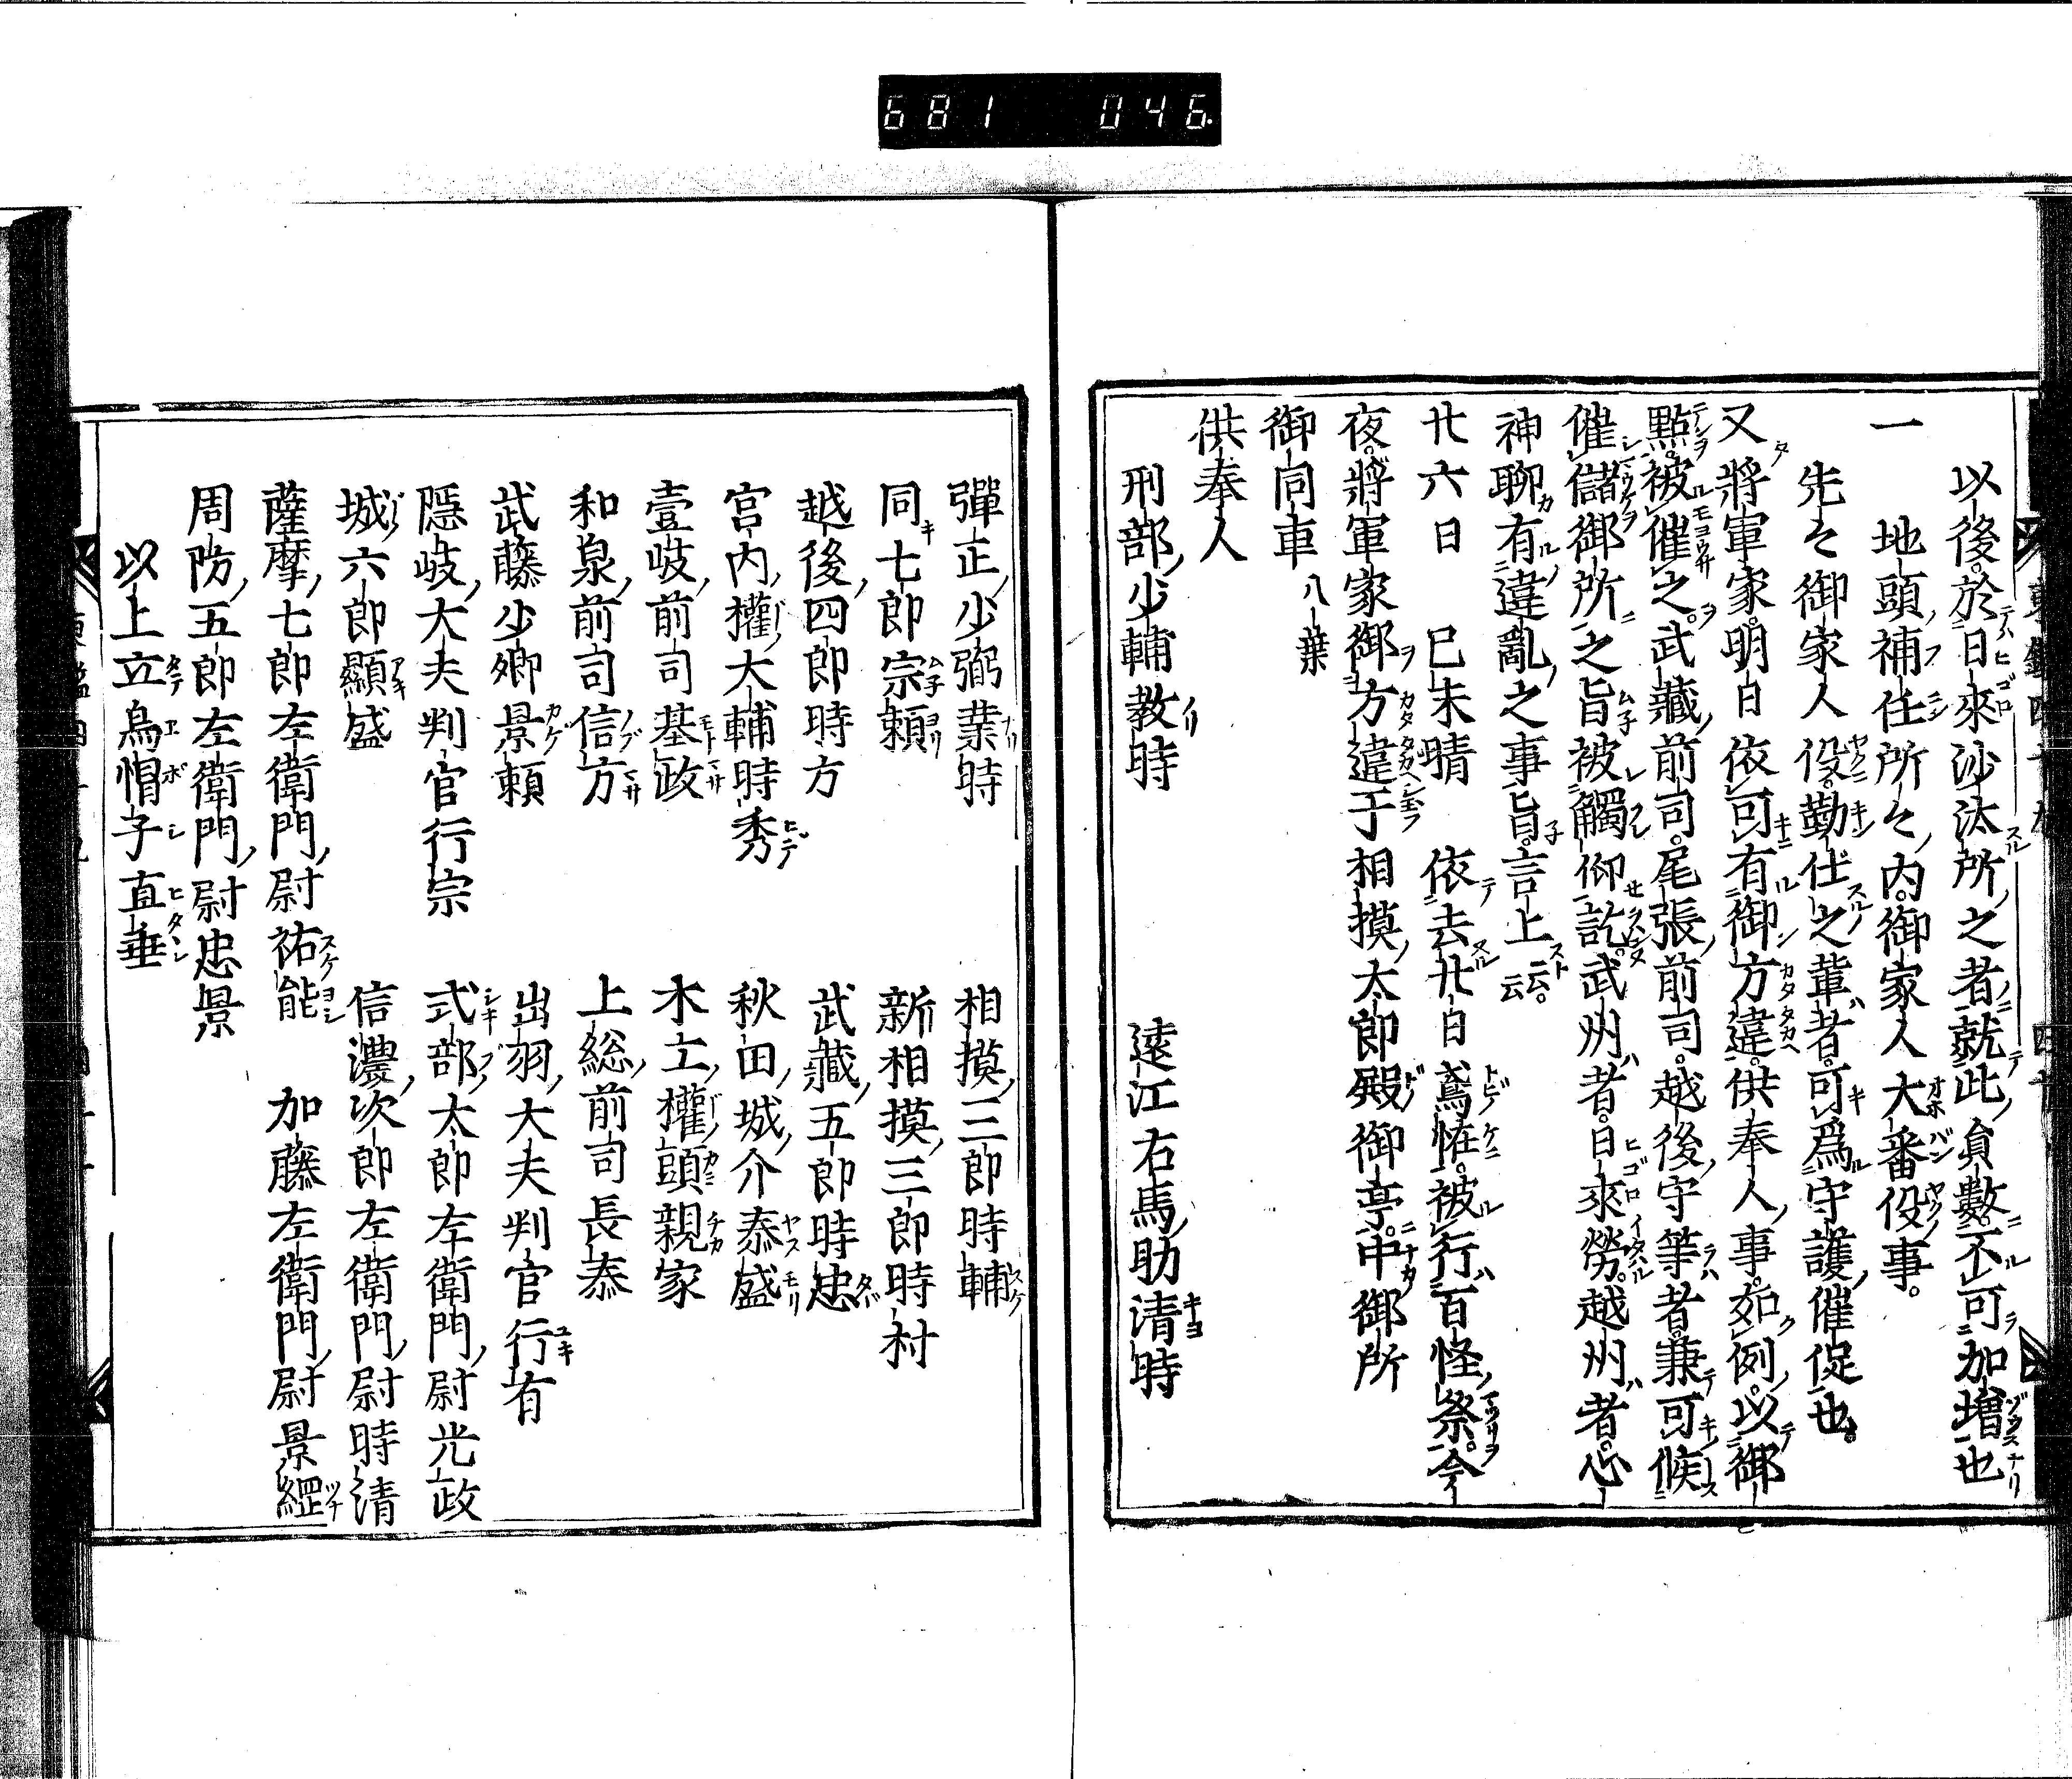 681 046
以後於日來沙汰所之者就此貟數不可加增也
一
地頭補任所々内御家人大番役事
先々御家人役勤仕之輩者可爲守護催促也
又將軍家明日依可有御方違供奉人事如例以御
點被催之武藏前司尾張前司越後守等者兼可候
催儲御所之旨被觸仰訖武州者日來勞越州者心
神聊有違亂之事旨言上云云
廿六日 巳未晴 依去廿日鳶恠被行百怪祭今
夜將軍家御方違于相摸太郎殿御亭中御所
御同車 八葉
供奉人
刑部少輔教時 遠江右馬助清時
彈正少弼業時 相摸三郎時輔
同七郎宗頼 新相摸三郎時村
越後四郎時方 武藏五郎時忠
宮内權大輔時秀 秋田城介泰盛
壹岐前司基政 木工權頭親家
和泉前司信方 上総前司長泰
武藤少卿景頼 出羽大夫判官行有
隱岐大夫判官行宗 式部太郎左衛門尉光政
城六郎顯盛 信濃次郎左衛門尉時清
薩摩七郎左衛門尉祐能 加藤左衛門尉景經
周防五郎左衛門尉忠景
以上立烏帽子直垂